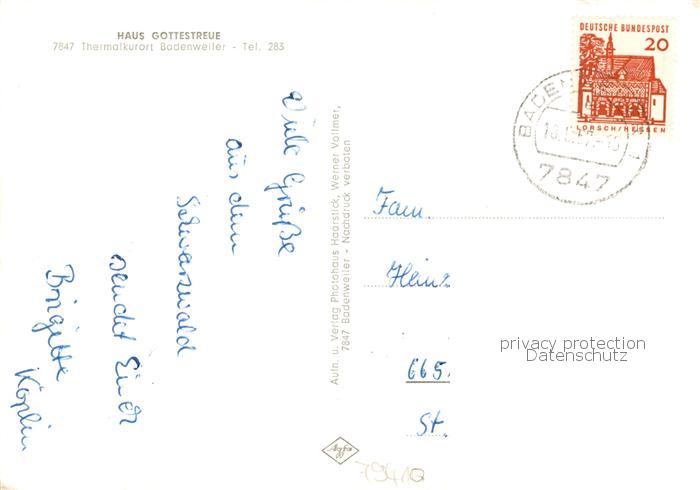 HAUS GOTTESTREUE
7847 Thermalkurort Badenweiler - Tel. 283
DEUTSCHE BUNDESPOST
20
LORSCH/HESSEN
7847
Viele Grüße
aus dem
Schwarzwald
sendet Euch
Brigitte
Köplin
Aufn. u. Verlag Photohaus Haarstick, Werner Vollmer,
7847 Badenweiler - Nachdruck verboten
Fam.
Heinz
665
St.
privacy protection
Datenschutz
Agfa